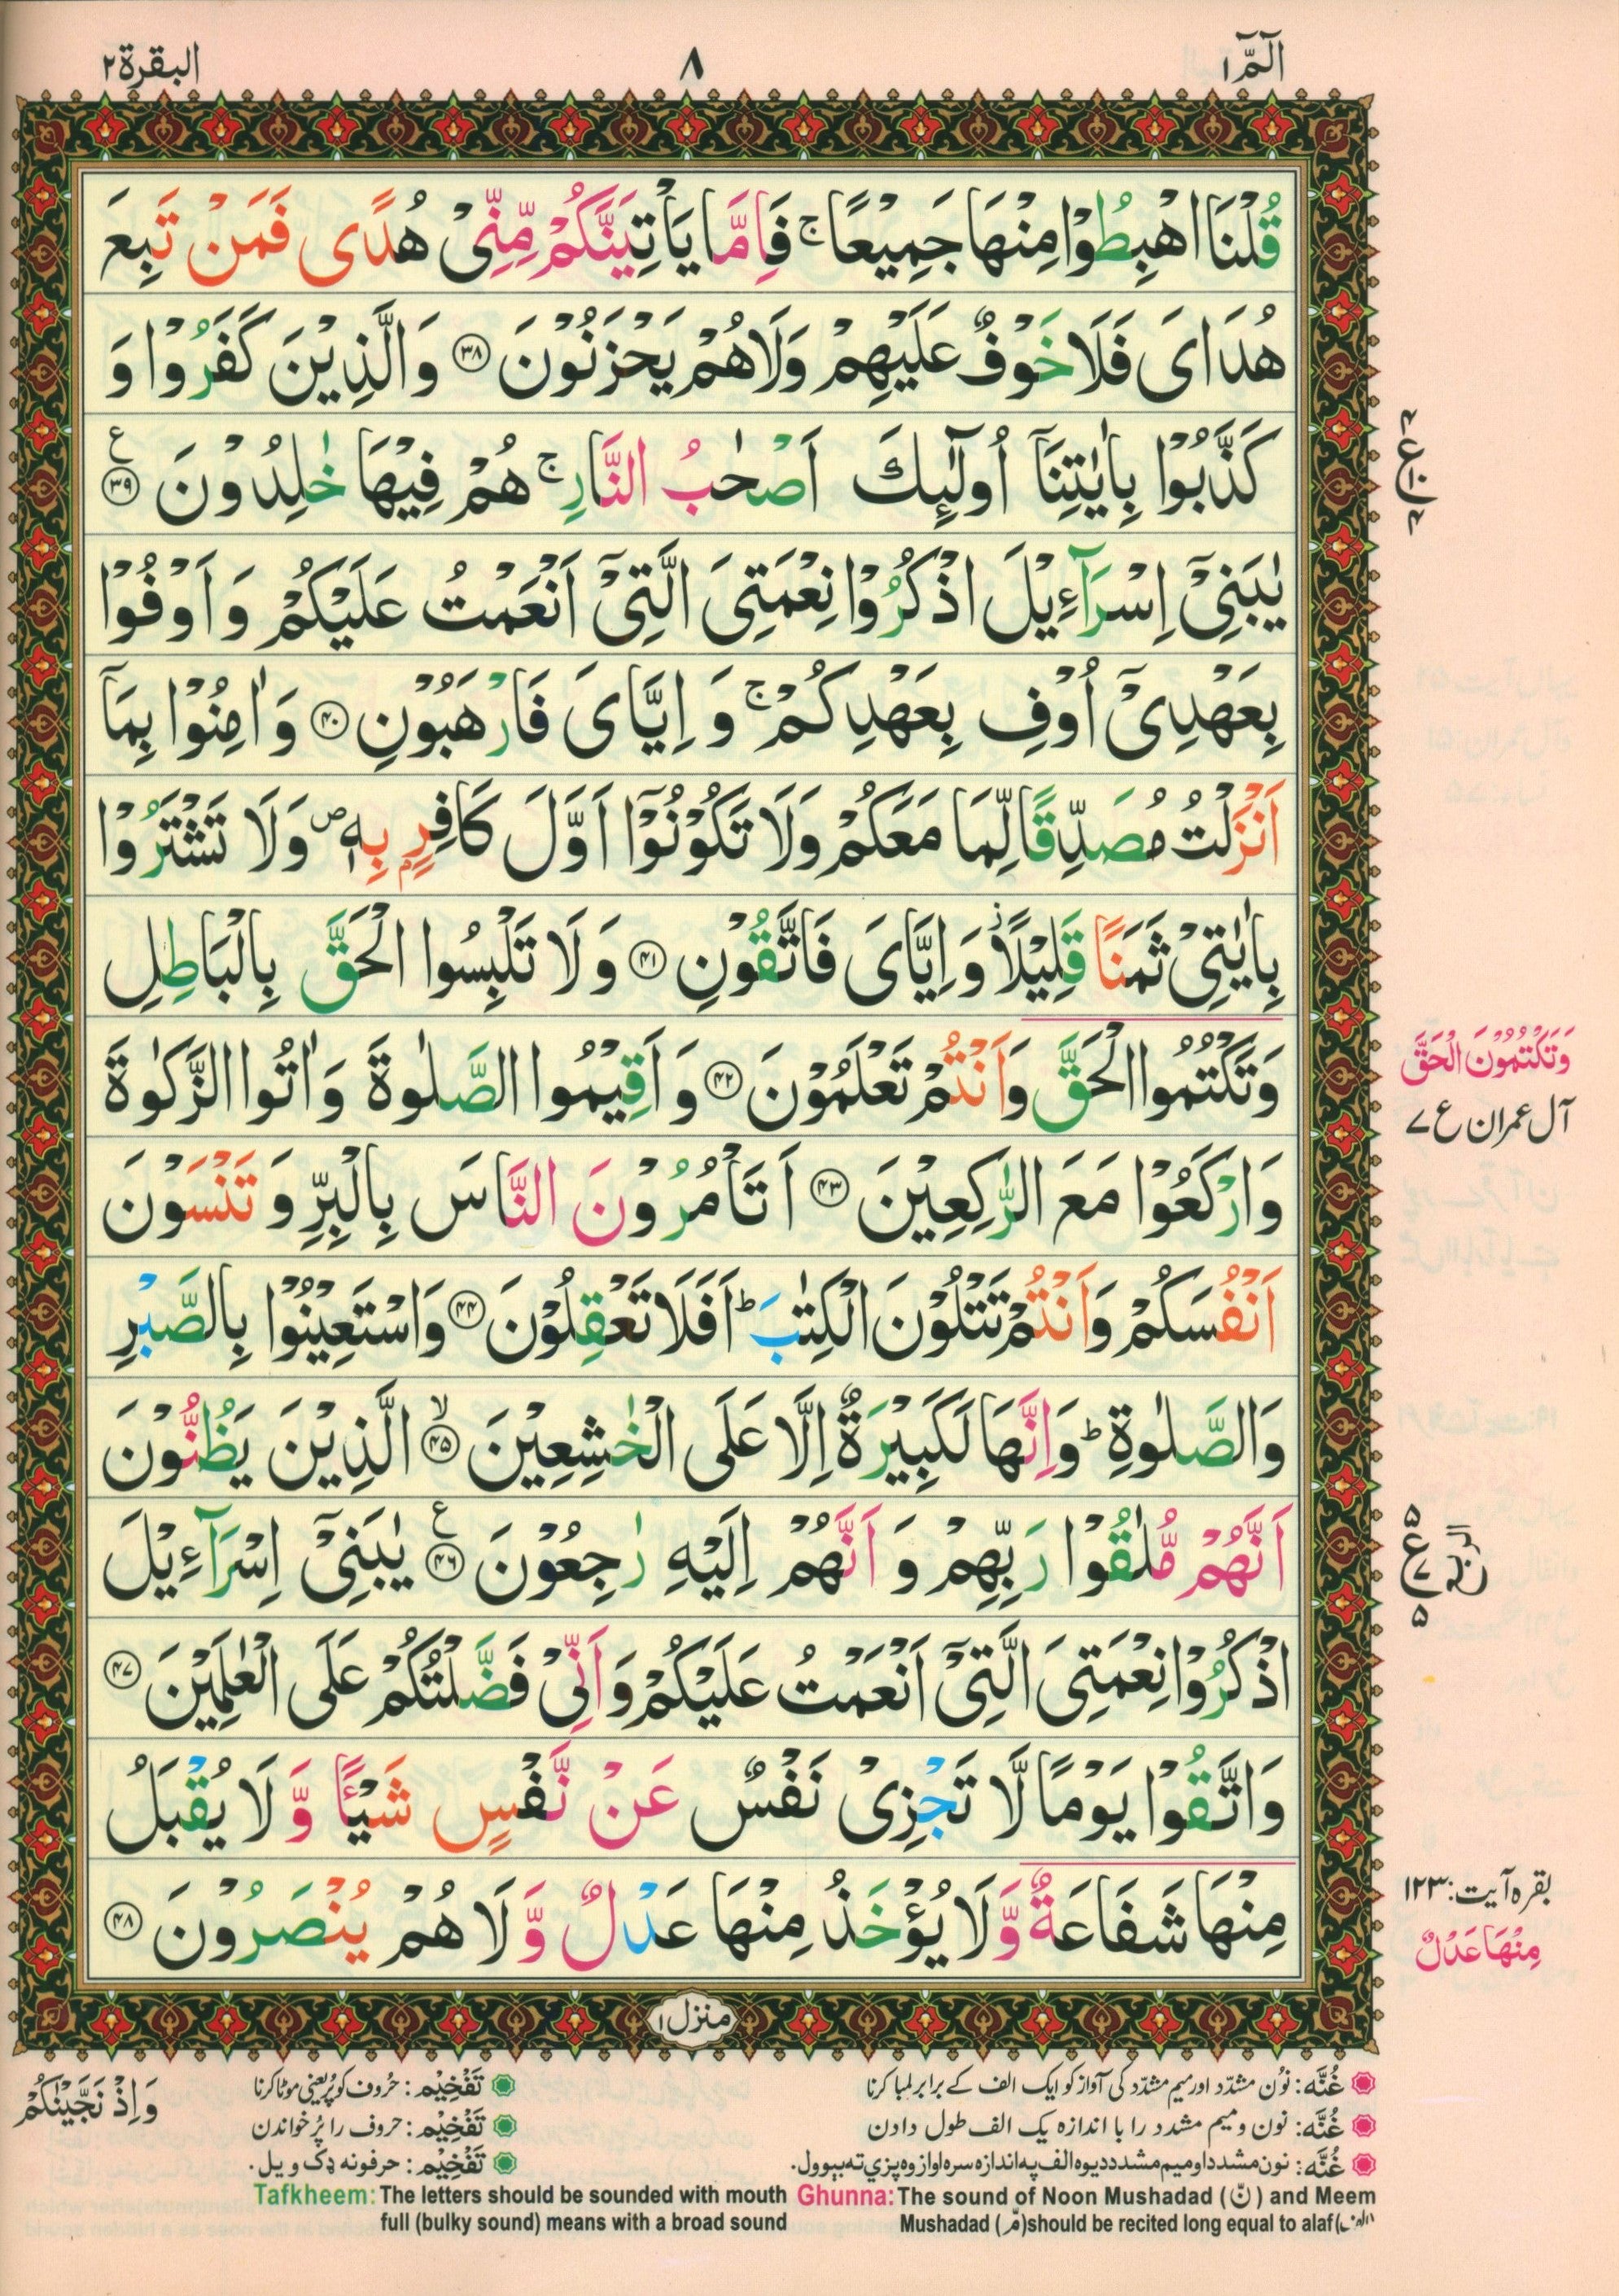 الٓمّٓ ١
٨
البقرة ٢
قُلْنَا اهْبِطُوْا مِنْهَا جَمِيْعًا ۚ فَاِمَّا يَاْتِيَنَّكُمْ مِّنِّيْ هُدًى فَمَنْ تَبِعَ
هُدَايَ فَلَا خَوْفٌ عَلَيْهِمْ وَلَا هُمْ يَحْزَنُوْنَ ﴿۳۸﴾ وَالَّذِيْنَ كَفَرُوْا وَ
كَذَّبُوْا بِاٰيٰتِنَآ اُولٰٓئِكَ اَصْحٰبُ النَّارِ ۚ هُمْ فِيْهَا خٰلِدُوْنَ ﴿۳۹﴾ ع
يٰبَنِيْٓ اِسْرَآءِيْلَ اذْكُرُوْا نِعْمَتِيَ الَّتِيْٓ اَنْعَمْتُ عَلَيْكُمْ وَاَوْفُوْا
بِعَهْدِيْٓ اُوْفِ بِعَهْدِكُمْ ۚ وَاِيَّايَ فَارْهَبُوْنِ ﴿۴۰﴾ وَاٰمِنُوْا بِمَآ
اَنْزَلْتُ مُصَدِّقًا لِّمَا مَعَكُمْ وَلَا تَكُوْنُوْٓا اَوَّلَ كَافِرٍۭ بِهٖ ۖ وَلَا تَشْتَرُوْا
بِاٰيٰتِيْ ثَمَنًا قَلِيْلًا ۫ وَاِيَّايَ فَاتَّقُوْنِ ﴿۴۱﴾ وَلَا تَلْبِسُوا الْحَقَّ بِالْبَاطِلِ
وَتَكْتُمُوا الْحَقَّ وَاَنْتُمْ تَعْلَمُوْنَ ﴿۴۲﴾ وَاَقِيْمُوا الصَّلٰوةَ وَاٰتُوا الزَّكٰوةَ
وَارْكَعُوْا مَعَ الرّٰكِعِيْنَ ﴿۴۳﴾ اَتَاْمُرُوْنَ النَّاسَ بِالْبِرِّ وَتَنْسَوْنَ
اَنْفُسَكُمْ وَاَنْتُمْ تَتْلُوْنَ الْكِتٰبَ ؕ اَفَلَا تَعْقِلُوْنَ ﴿۴۴﴾ وَاسْتَعِيْنُوْا بِالصَّبْرِ
وَالصَّلٰوةِ ؕ وَاِنَّهَا لَكَبِيْرَةٌ اِلَّا عَلَى الْخٰشِعِيْنَ ﴿۴۵﴾ۙ الَّذِيْنَ يَظُنُّوْنَ
اَنَّهُمْ مُّلٰقُوْا رَبِّهِمْ وَاَنَّهُمْ اِلَيْهِ رٰجِعُوْنَ ﴿۴۶﴾ ع يٰبَنِيْٓ اِسْرَآءِيْلَ
اذْكُرُوْا نِعْمَتِيَ الَّتِيْٓ اَنْعَمْتُ عَلَيْكُمْ وَاَنِّيْ فَضَّلْتُكُمْ عَلَى الْعٰلَمِيْنَ ﴿۴۷﴾
وَاتَّقُوْا يَوْمًا لَّا تَجْزِيْ نَفْسٌ عَنْ نَّفْسٍ شَيْـًٔا وَّلَا يُقْبَلُ
مِنْهَا شَفَاعَةٌ وَّلَا يُؤْخَذُ مِنْهَا عَدْلٌ وَّلَا هُمْ يُنْصَرُوْنَ ﴿۴۸﴾
وَتَكْتُمُوْنَ الْحَقَّ
آل عمران ع ۷
بقرہ آیت: ۱۲۳
مِنْهَا عَدْلٌ
منزل ۱
غُنَّه: نوُن مشدّد اور میم مشدّد کی آواز کو ایک الف کے برابر لمبا کرنا
غُنَّه: نون و میم مشدد را با اندازه یک الف طول دادن
غُنَّه: نون مشدد او میم مشدد دیوه الف په اندازه سره اواز وه پزي ته بېوول.
تَفْخِيْم: حُروف کو پُر یعنی موٹا کرنا
تَفْخِيْم: حروف را پُر خواندن
تَفْخِيْم: حرفونه ډک ویل.
وَاِذْ نَجَّيْنٰكُمْ
Ghunna: The sound of Noon Mushadad (نّ) and Meem
Mushadad (مّ) should be recited long equal to alaf
Tafkheem: The letters should be sounded with mouth
full (bulky sound) means with a broad sound